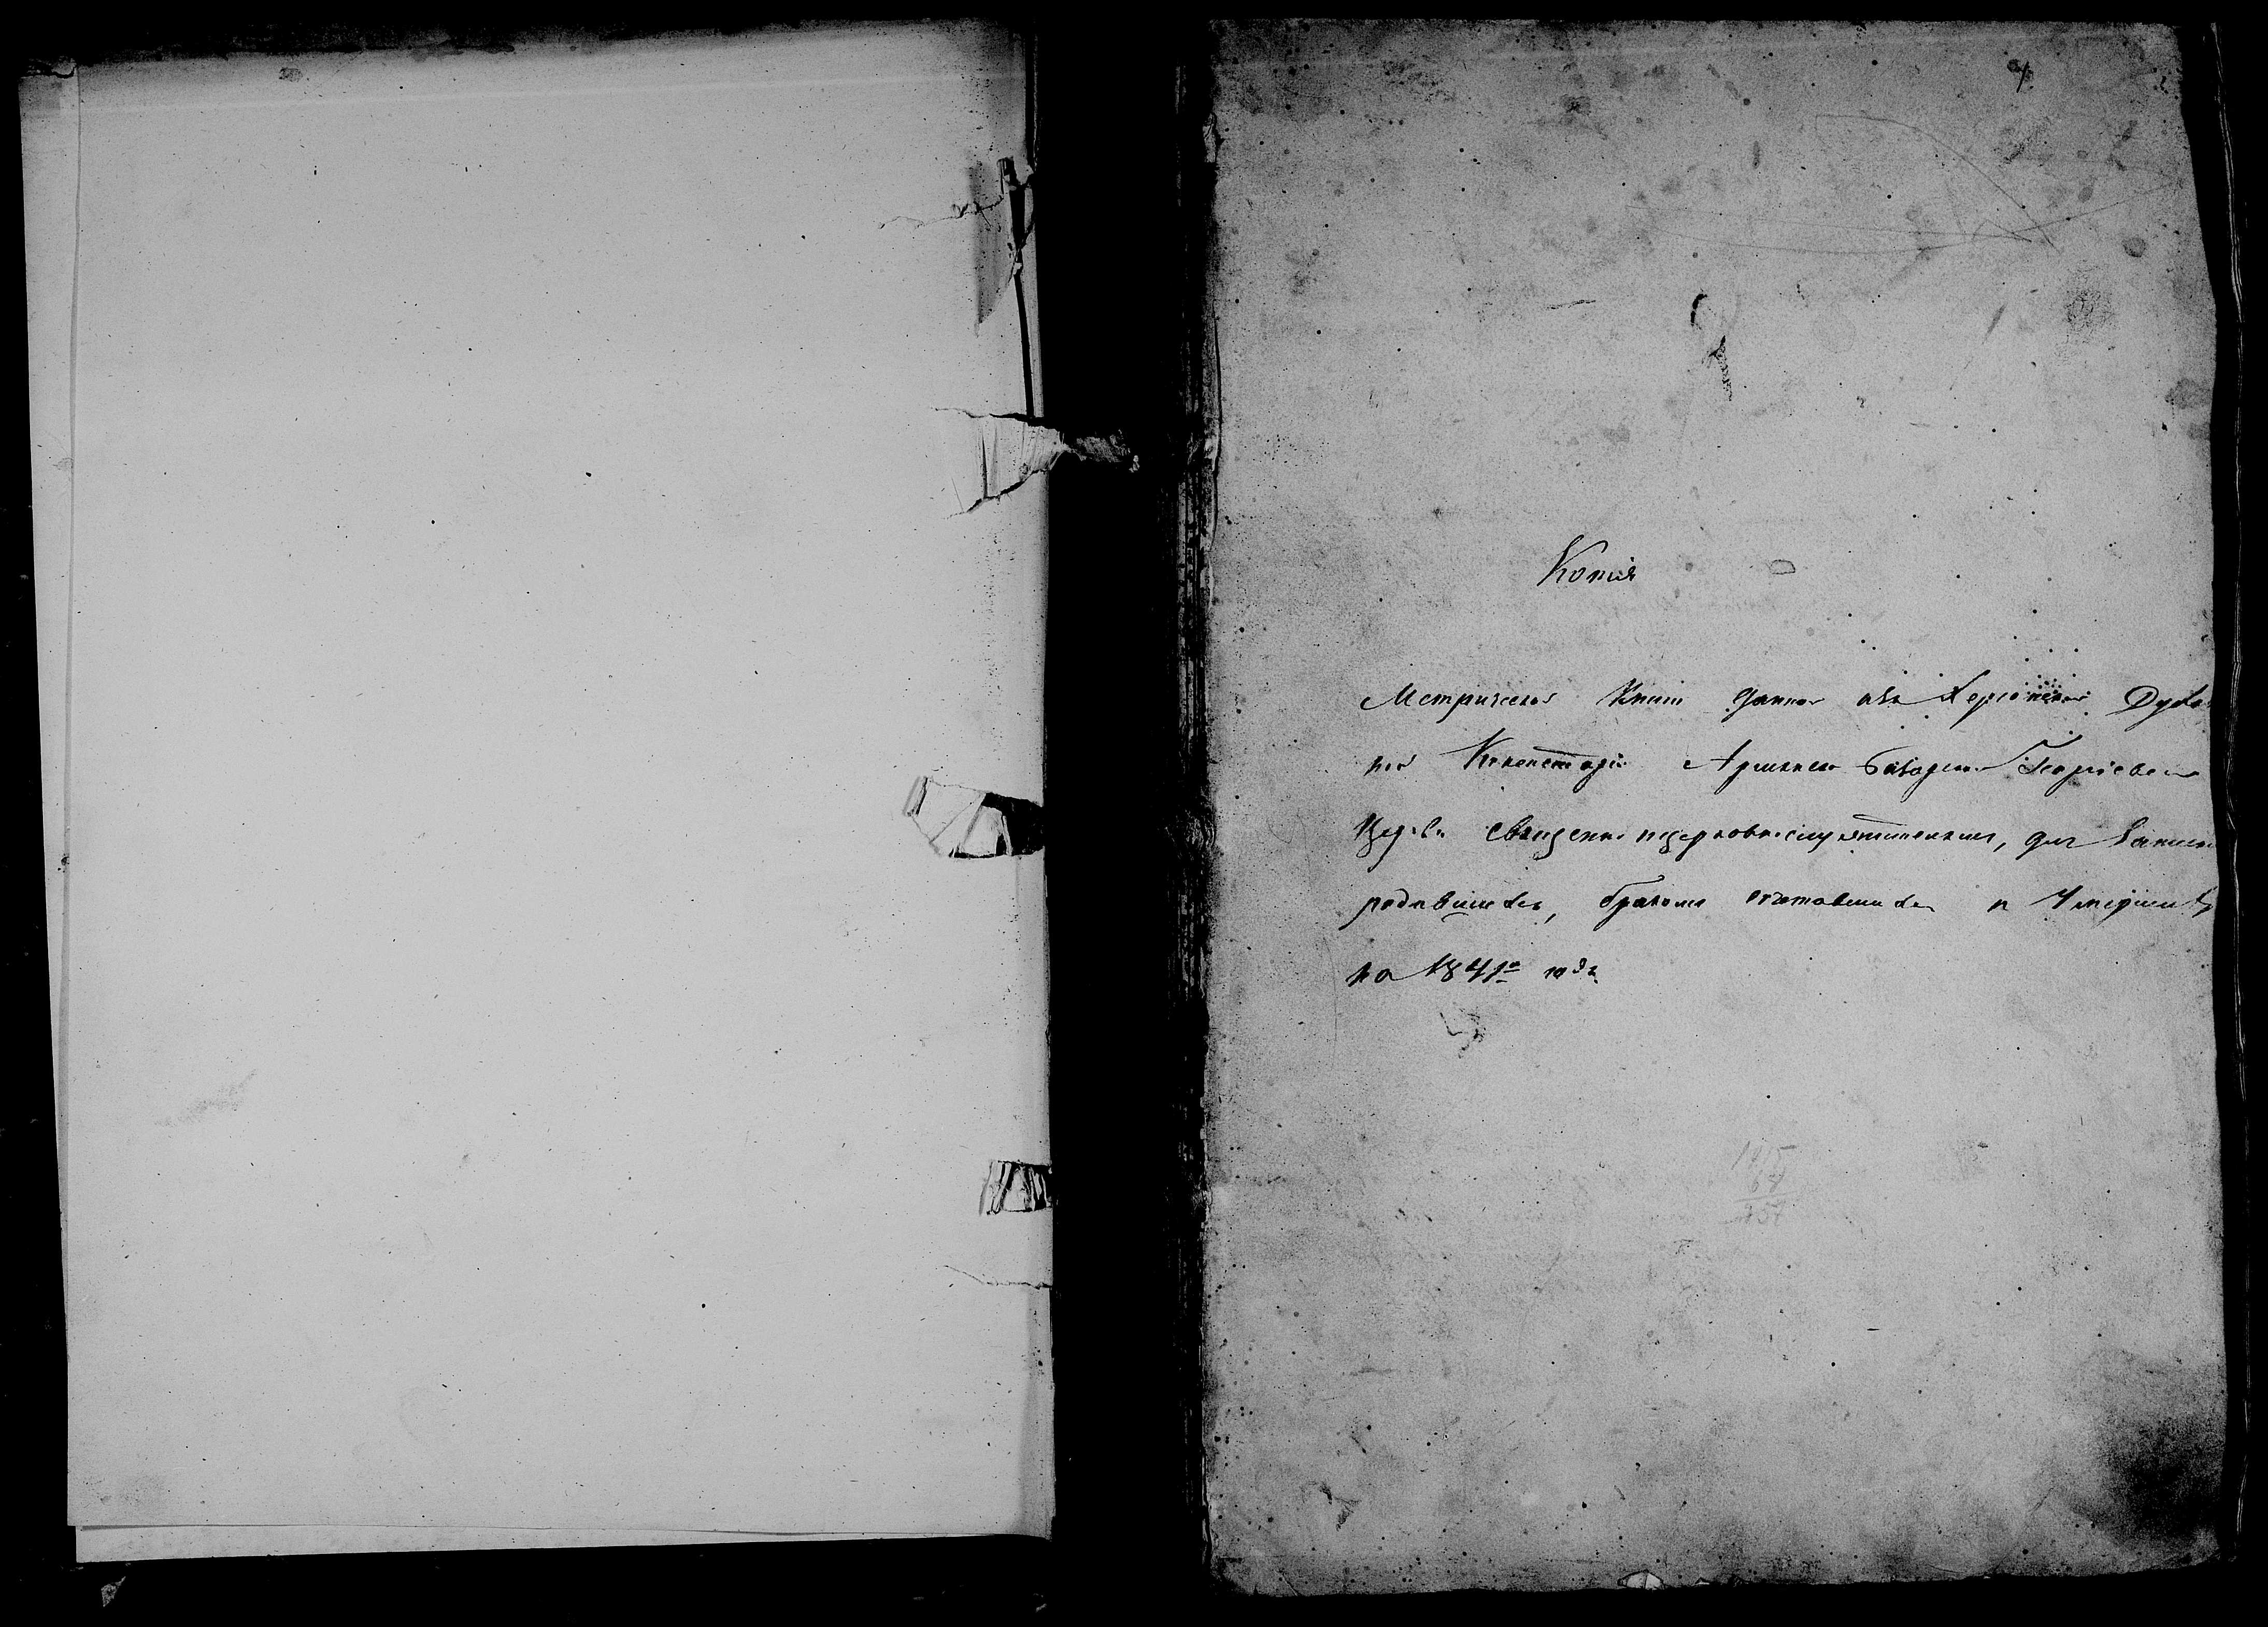 1.
Копія
Метрическая Книга данная изъ Херсонской Духов
ной Консисторіи Армянско Базарской Георгіевской
Церкви Священно и церковнослужителямъ, для записки
родившихся, бракомъ сочетавшихся и Умершихъ
на 1841й годъ